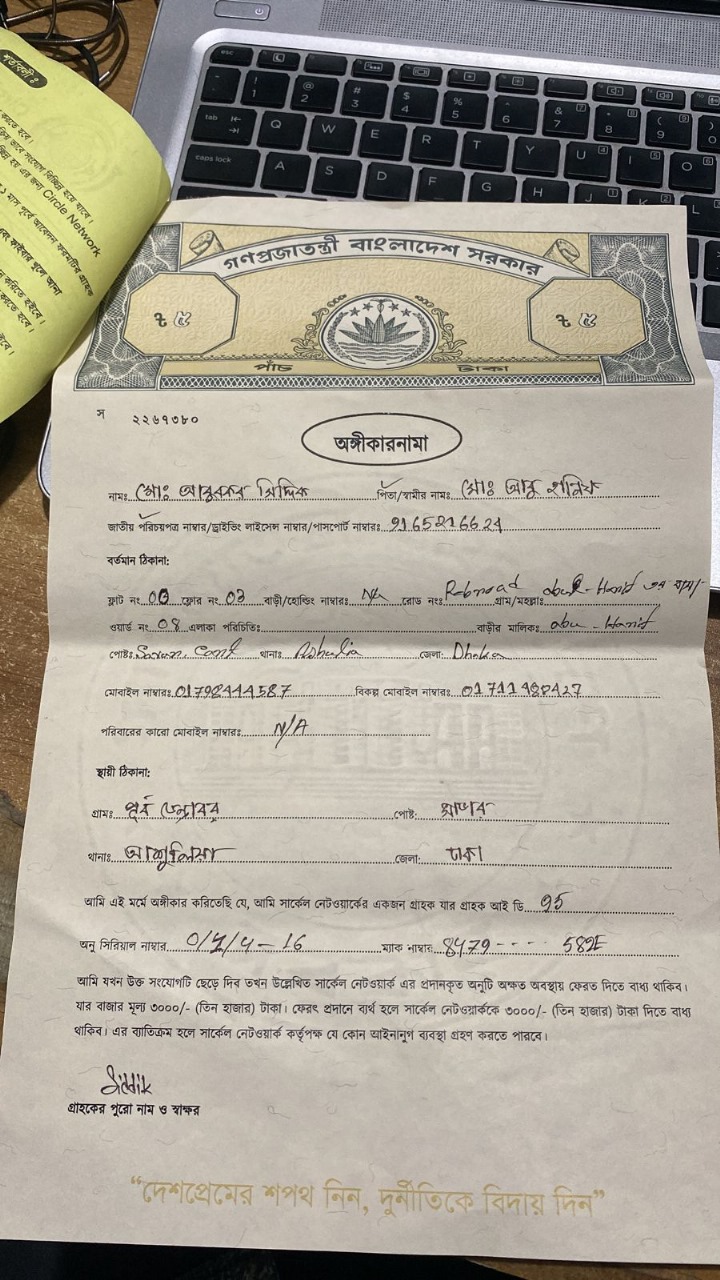 শর্তাবলী ঃ
Circle Network
esc
! 1 @ 2 # 3 $ 4 % 5 ^ 6 & 7 * 8 ( 9 ) 0
tab Q W E R T Y U I O
caps lock A S D F G H J K L
গণপ্রজাতন্ত্রী বাংলাদেশ সরকার
৳ ৫ ৳ ৫
পাঁচ টাকা
স ২২৬৭৩৮০
অঙ্গীকারনামা
নামঃ মোঃ আবুবকর সিদ্দিক পিতা/স্বামীর নামঃ মোঃ আবু হানিফ
জাতীয় পরিচয়পত্র নাম্বার/ড্রাইভিং লাইসেন্স নাম্বার/পাসপোর্ট নাম্বারঃ 9165216624
বর্তমান ঠিকানা:
ফ্লাট নং 00 ফ্লোর নং 03 বাড়ী/হোল্ডিং নাম্বারঃ N/A রোড নংঃ গ্রাম/মহল্লাঃ abu-Hanif এর বাসা
ওয়ার্ড নং 08 এলাকা পরিচিতিঃ বাড়ীর মালিকঃ abu-Hanif
পোষ্টঃ Savar. Cant থানাঃ Ashulia জেলা: Dhaka
মোবাইল নাম্বারঃ 01798444587 বিকল্প মোবাইল নাম্বারঃ
পরিবারের কারো মোবাইল নাম্বারঃ N/A
স্থায়ী ঠিকানা:
গ্রামঃ পূর্ব ডেন্ডাবর পোষ্ট: সাভার
থানাঃ আশুলিয়া জেলা: ঢাকা
আমি এই মর্মে অঙ্গীকার করিতেছি যে, আমি সার্কেল নেটওয়ার্কের একজন গ্রাহক যার গ্রাহক আই ডি 95
অনু সিরিয়াল নাম্বার 0/1/4-16 ম্যাক নাম্বার 8479---- 582E
আমি যখন উক্ত সংযোগটি ছেড়ে দিব তখন উল্লেখিত সার্কেল নেটওয়ার্ক এর প্রদানকৃত অনুটি অক্ষত অবস্থায় ফেরত দিতে বাধ্য থাকিব।
যার বাজার মূল্য ৩০০০/- (তিন হাজার) টাকা। ফেরৎ প্রদানে ব্যর্থ হলে সার্কেল নেটওয়ার্ককে ৩০০০/- (তিন হাজার) টাকা দিতে বাধ্য
থাকিব। এর ব্যাতিক্রম হলে সার্কেল নেটওয়ার্ক কর্তৃপক্ষ যে কোন আইনানুগ ব্যবস্থা গ্রহণ করতে পারবে।
Siddik
গ্রাহকের পুরো নাম ও স্বাক্ষর
“দেশপ্রেমের শপথ নিন, দুর্নীতিকে বিদায় দিন”